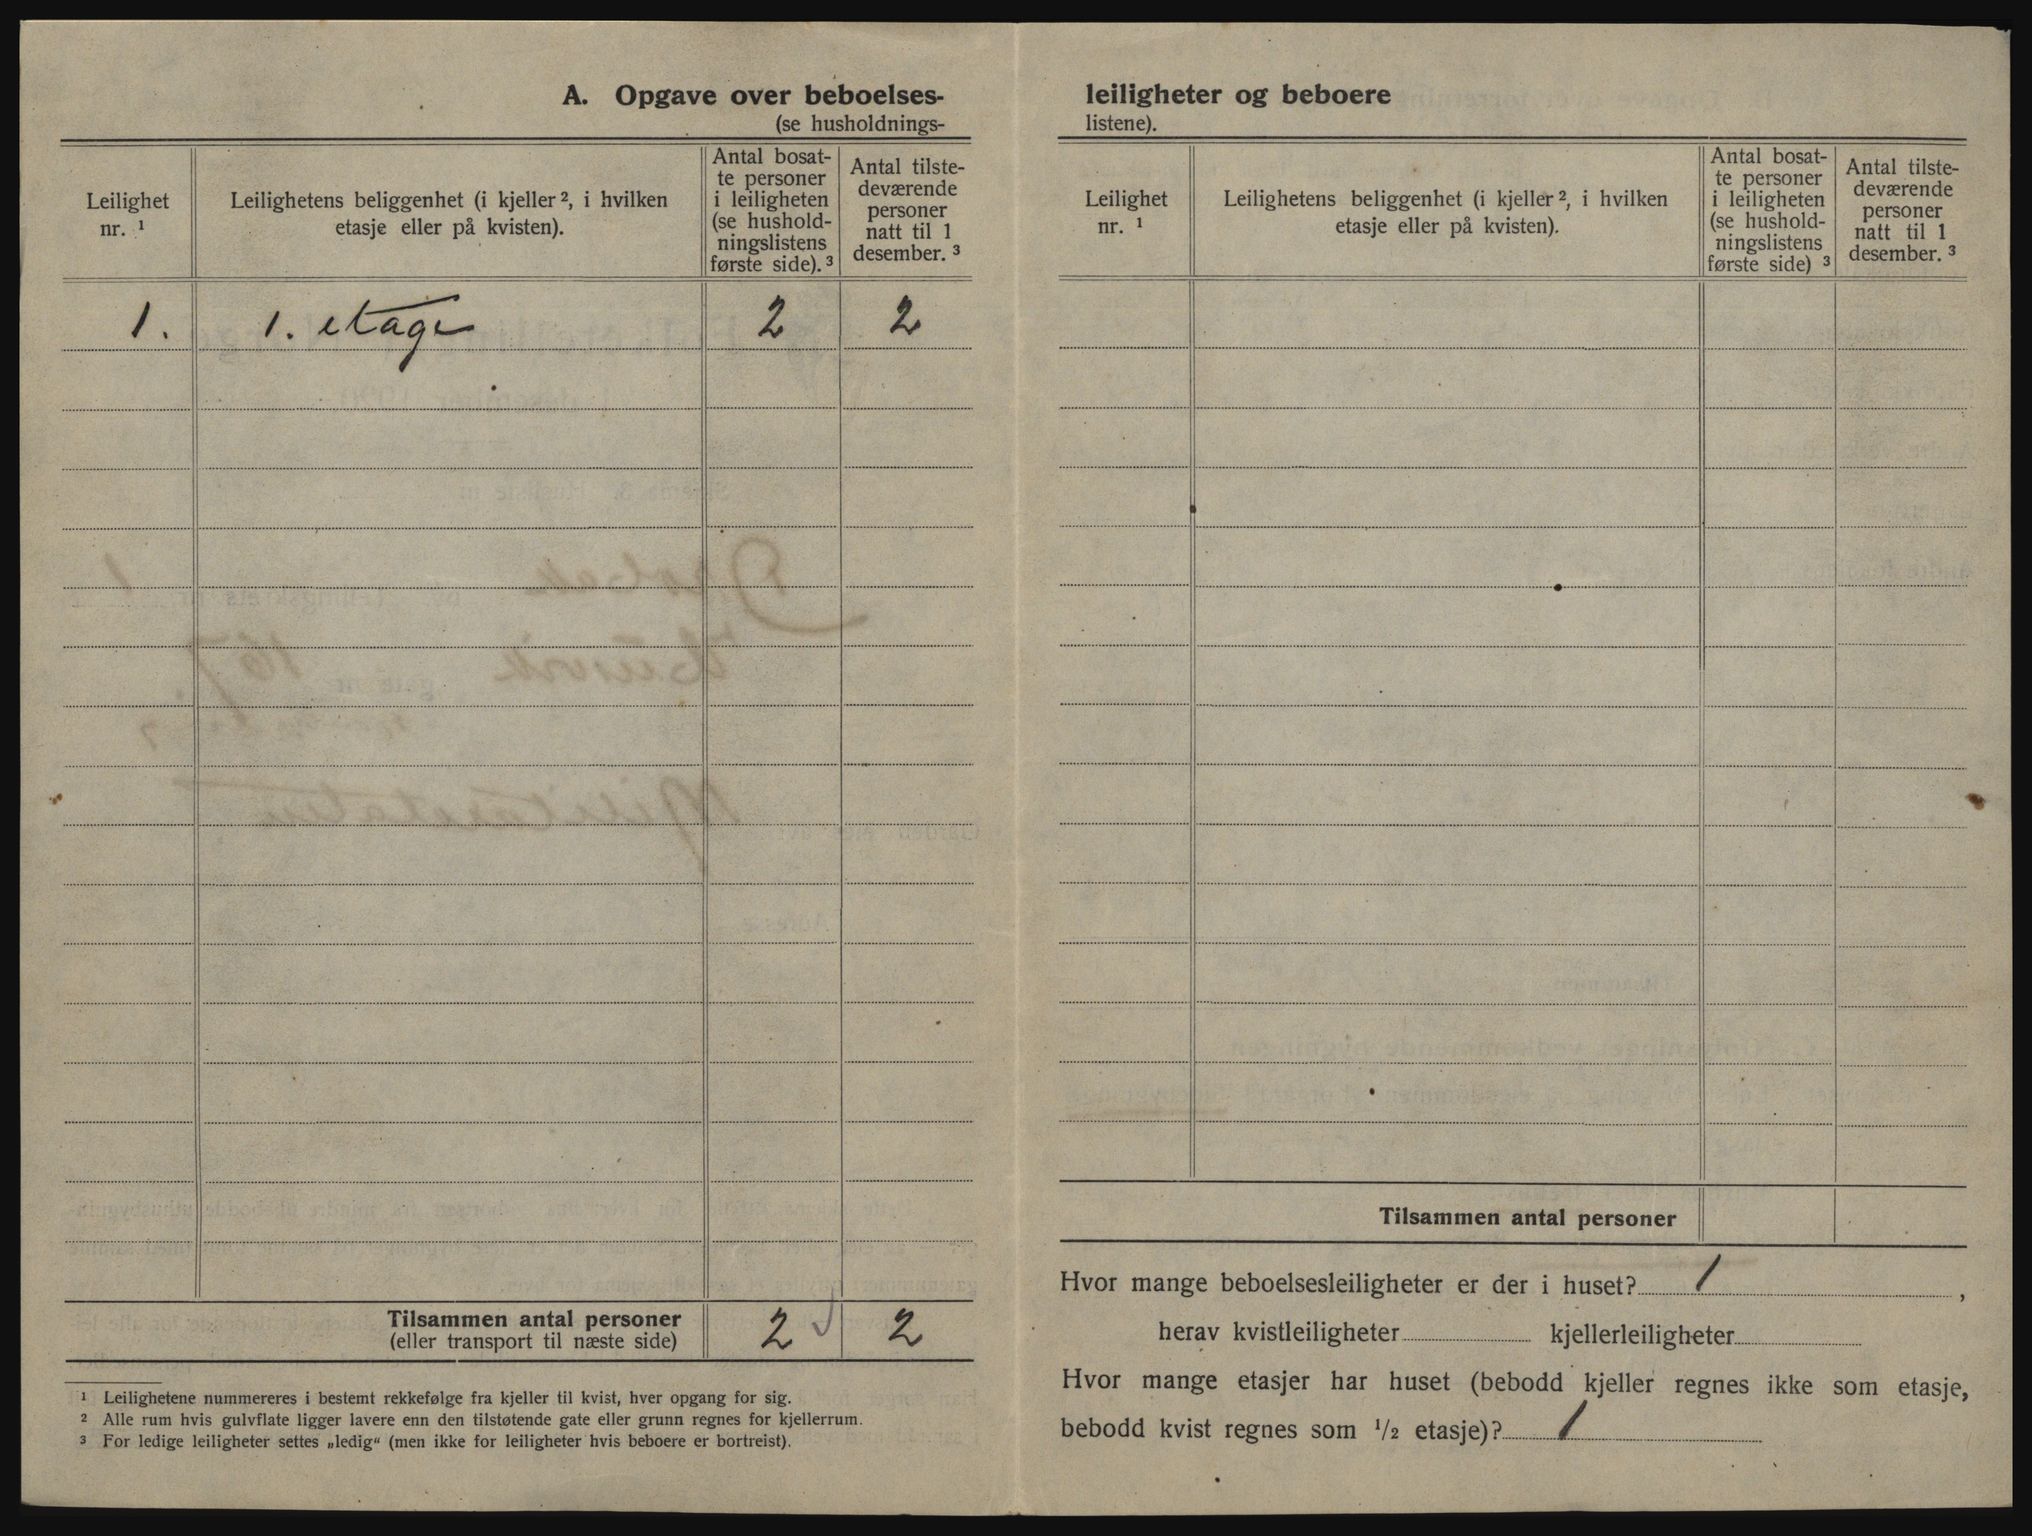 A. Opgave over beboelses-
(se husholdnings-
Leilighet
nr. ¹
Leilighetens beliggenhet (i kjeller ², i hvilken
etasje eller på kvisten).
Antal bosat-
te personer
i leiligheten
(se hushold-
ningslistens
første side). ³
Antal tilste-
deværende
personer
natt til 1
desember. ³
1. 1. etage 2 2
Tilsammen antal personer 2 2
(eller transport til næste side)
¹ Leilighetene nummereres i bestemt rekkefølge fra kjeller til kvist, hver opgang for sig.
² Alle rum hvis gulvflate ligger lavere enn den tilstøtende gate eller grunn regnes for kjellerrum.
³ For ledige leiligheter settes „ledig“ (men ikke for leiligheter hvis beboere er bortreist).
leiligheter og beboere
listene).
Leilighet
nr. ¹
Leilighetens beliggenhet (i kjeller ², i hvilken
etasje eller på kvisten).
Antal bosat-
te personer
i leiligheten
(se hushold-
ningslistens
første side) ³
Antal tilste-
deværende
personer
natt til 1
desember. ³
Tilsammen antal personer
Hvor mange beboelsesleiligheter er der i huset? 1,
herav kvistleiligheter kjellerleiligheter
Hvor mange etasjer har huset (bebodd kjeller regnes ikke som etasje,
bebodd kvist regnes som ½ etasje)? 1